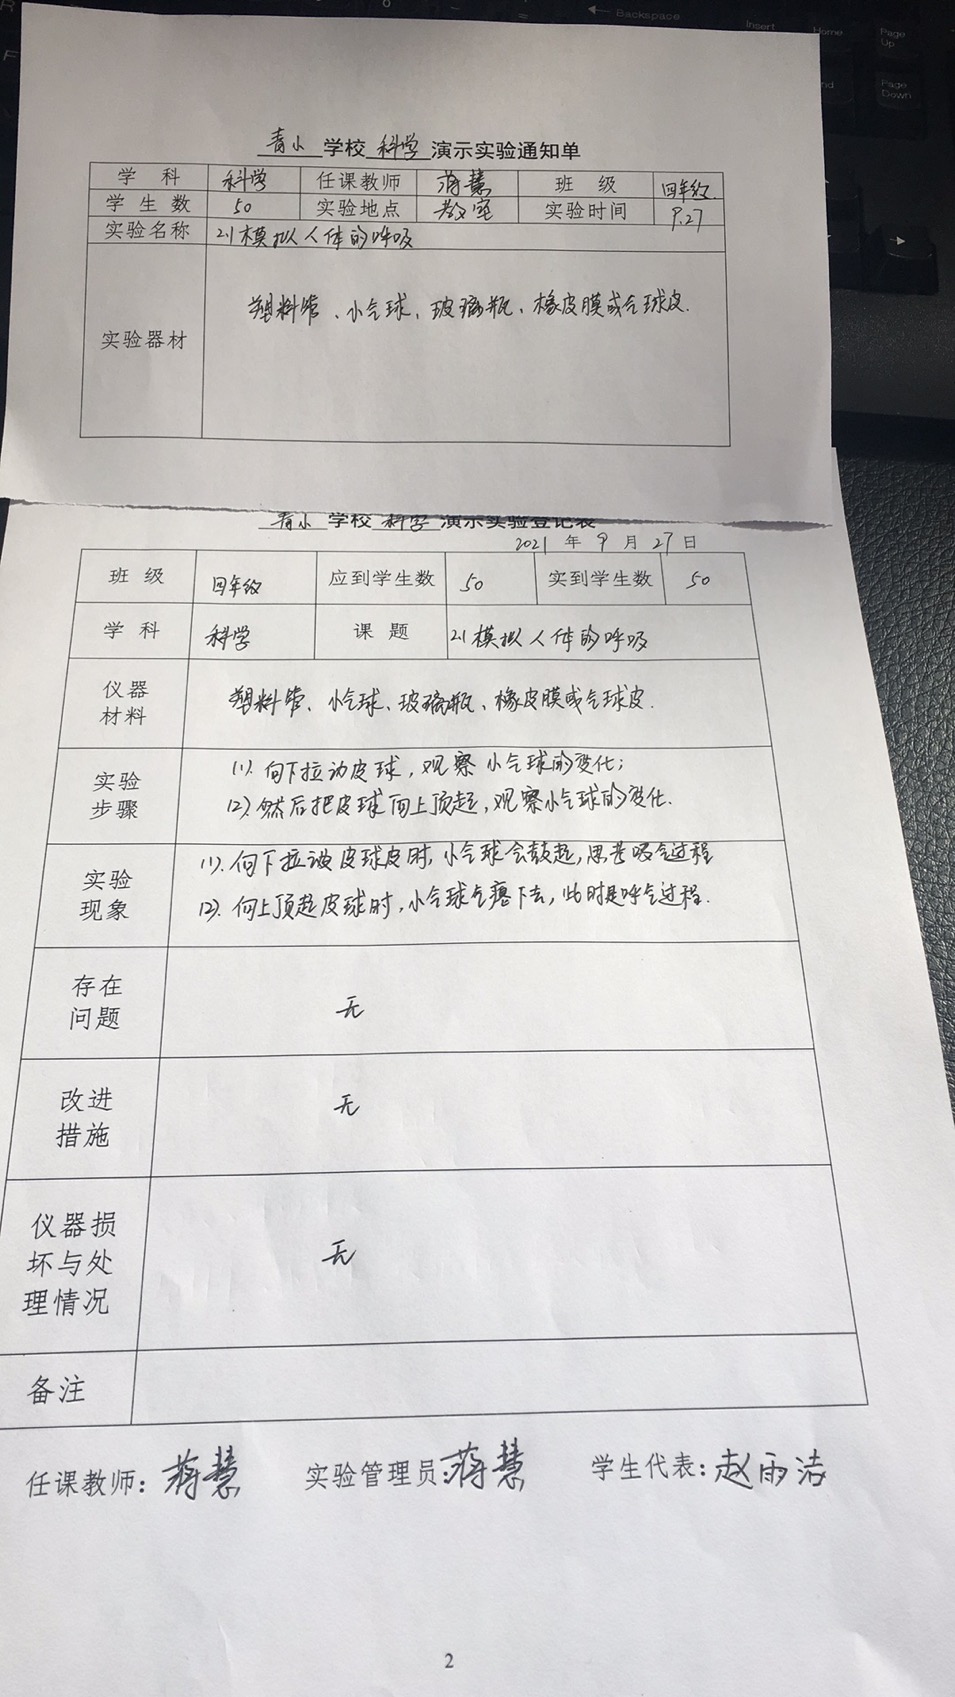 Backspace
Insert
Home
Page Up
Page Down
青小 学校 科学 演示实验通知单
学 科 科学 任课教师 蒋慧 班 级 四年级.
学 生 数 50 实验地点 教室 实验时间 9.27
实验名称 2.1模拟人体的呼吸
实验器材 塑料管、小气球、玻璃瓶、橡皮膜或气球皮.
青小 学校 科学 演示实验登记表
2021 年 9 月 27 日
班 级 四年级 应到学生数 50 实到学生数 50
学 科 科学 课 题 2.1模拟人体的呼吸
仪器
材料
塑料管、小气球、玻璃瓶、橡皮膜或气球皮.
实验
步骤
(1). 向下拉动皮球，观察小气球的变化；
(2). 然后把皮球向上顶起，观察小气球的变化.
实验
现象
(1). 向下拉动皮球皮时，小气球会鼓起，思考吸气过程
(2). 向上顶起皮球时，小气球气瘪下去，此时是呼气过程.
存在
问题
无
改进
措施
无
仪器损
坏与处
理情况
无
备注
任课教师：蒋慧 实验管理员：蒋慧 学生代表：赵雨洁
2